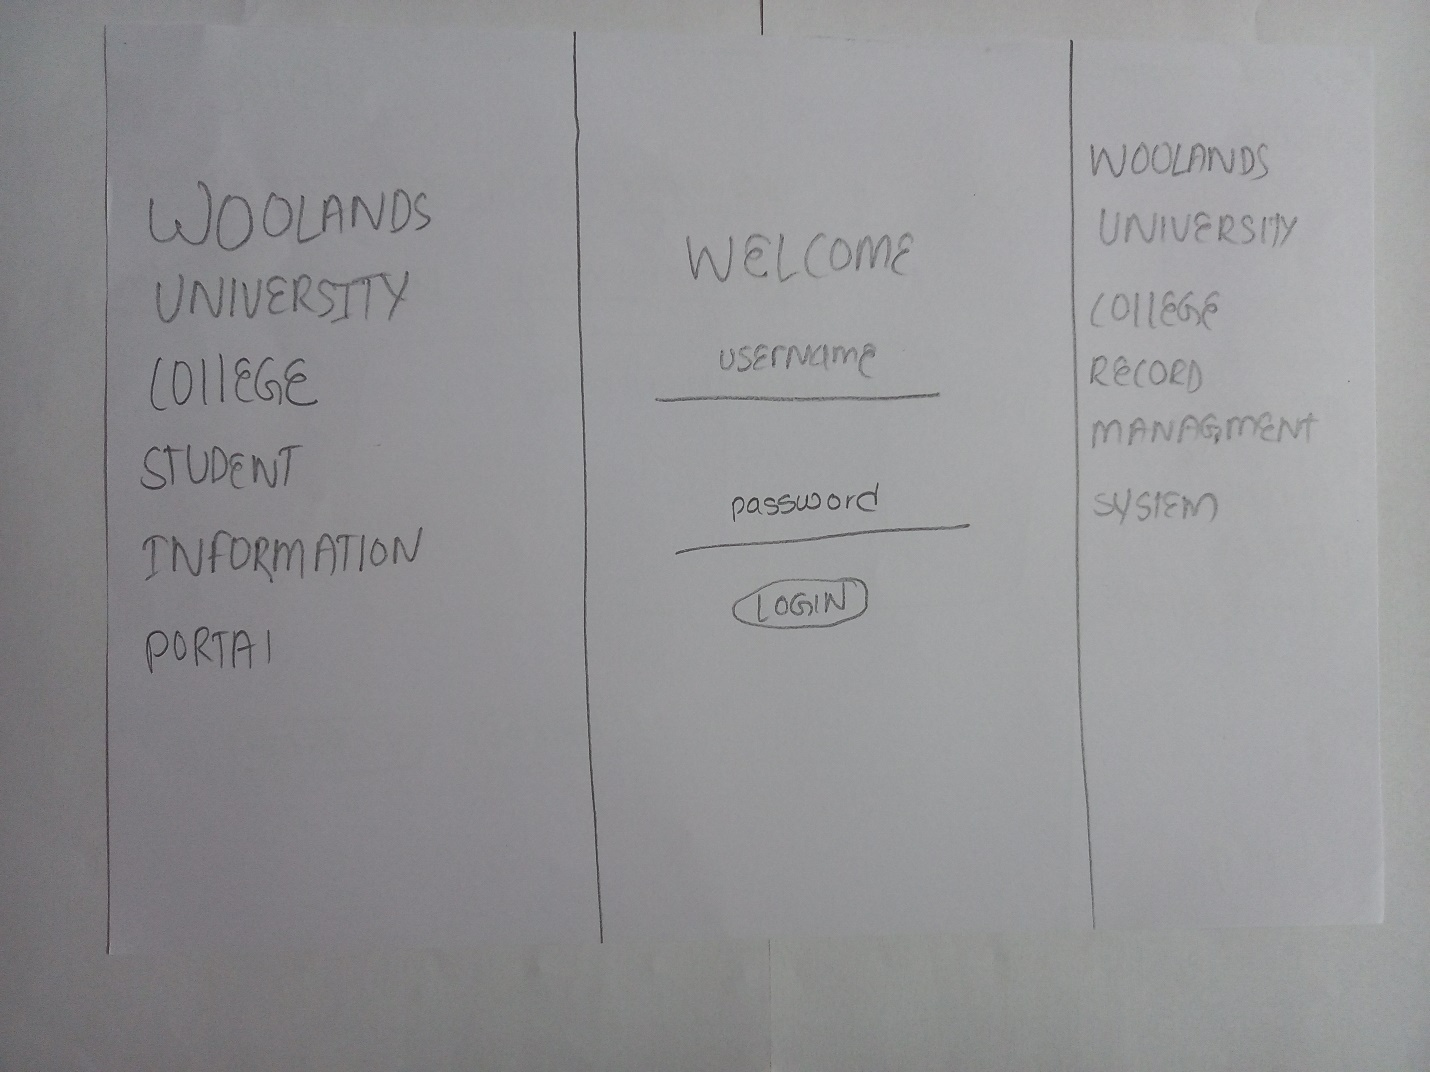 WOOLANDS
UNIVERSITY
COllEGE
STUDENT
INFORMATION
PORTAl
WELCOME
USErNAME
password
LOGIN
WOOLANDS
UNIVERSITY
COllEGE
RECORD
MANAGMENT
SYSTEM